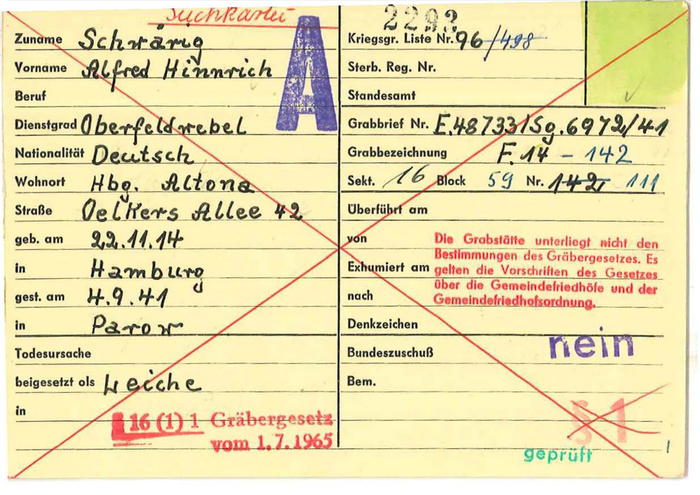 Suchkartei
2293
A
Zuname Schwärig
Vorname Alfred Hinnrich
Beruf
Dienstgrad Oberfeldwebel
Nationalität Deutsch
Wohnort Hbg. Altona
Straße Oelkers Allee 42
geb. am 22.11.14
in Hamburg
gest. am 4.9.41
in Parow
Todesursache
beigesetzt als Leiche
in
§ 16 (1) 1 Gräbergesetz
vom 1.7.1965
Kriegsgr. Liste Nr. 96/498
Sterb. Reg. Nr.
Standesamt
Grabbrief Nr. E.48733/Sg.6972/41
Grabbezeichnung F.14 - 142
Sekt. 16 Block 59 Nr. 142 111
Überführt am
von
Die Grabstätte unterliegt nicht den
Bestimmungen des Gräbergesetzes. Es
gelten die Vorschriften des Gesetzes
über die Gemeindefriedhöfe und der
Gemeindefriedhofsordnung.
Exhumiert am
nach
Denkzeichen
nein
Bundeszuschuß
Bem.
§ 1
geprüft